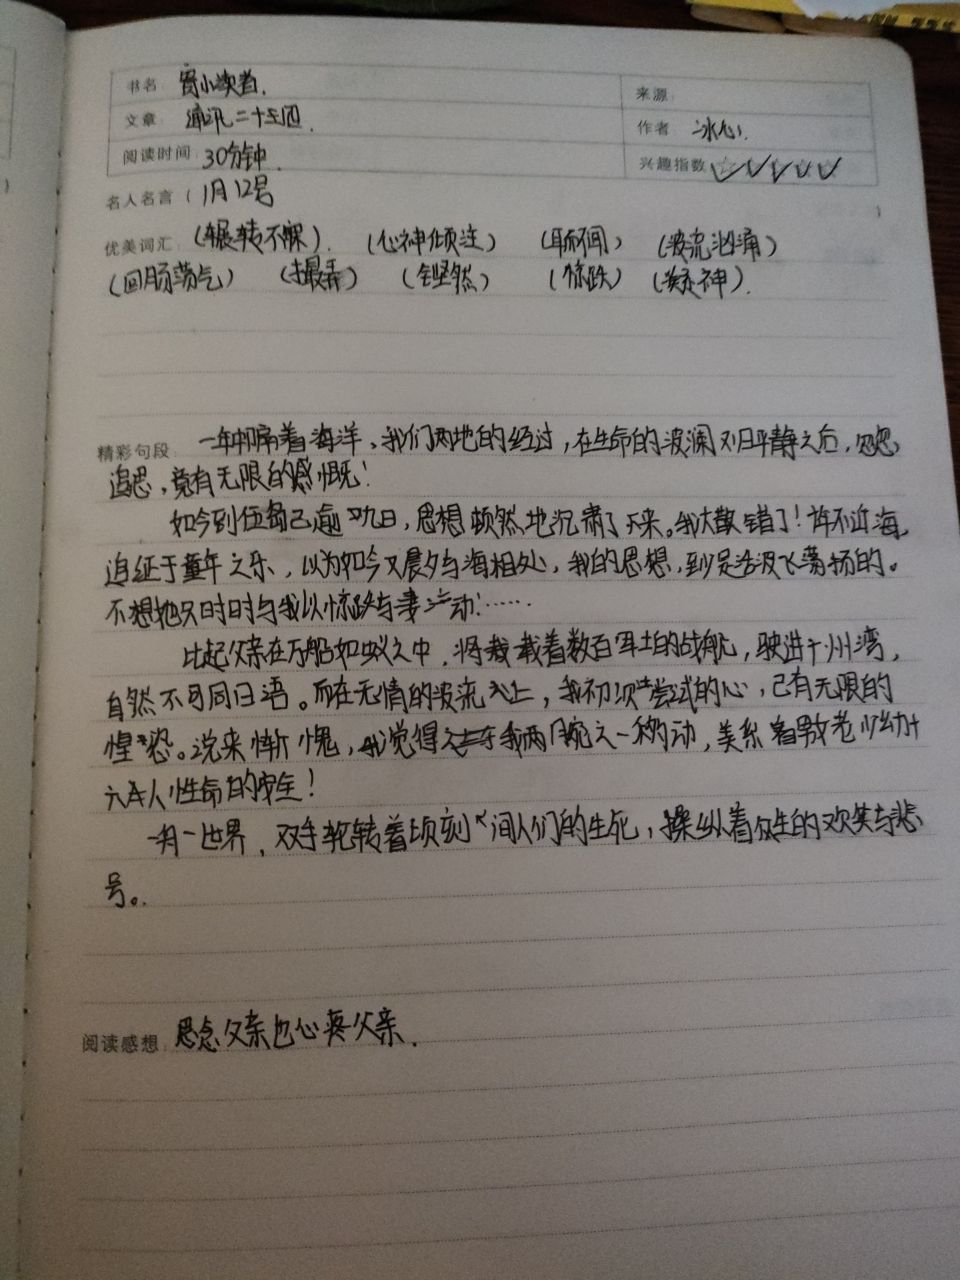 书名: 寄小读者.
来源:
文章: 通讯二十五四.
作者 冰心.
阅读时间: 30分钟.
兴趣指数
名人名言( 1月12号 )
优美词汇: (辗转不寐). (心神倾注) (耳不闻) (波流汹涌)
(回肠荡气) (撮弄) (铿然) (惊跌) (凝神).
精彩句段: 一年中隔着海洋、我们两地的经过,在生命的波澜又归平静之后,忽忽
追思,竟有无限的感慨!
如今到伍岛已逾九日,思想顿然地沉肃了下来。我大散错了!许不近海,
追征于童年之乐,以为如今又晨夕与海相处,我的思想,到是活泼飞荡扬的。
不想她只时时与我以惊跌与凄动!……
比起父亲在万船如蚁之中,将载着数百军士的战舰,驶进广州湾,
自然不可同日语。而在无情的波流之上,我初次尝试的心,已有无限的
惶恐。说来惭愧,我觉得我两腕之一移动,关系着男女老幼
六人性命的安全!
有一世界,双手轮转着顷刻之间人们的生死,操纵着众生的欢笑与悲
号。.
阅读感想: 思念父亲也心疼父亲.